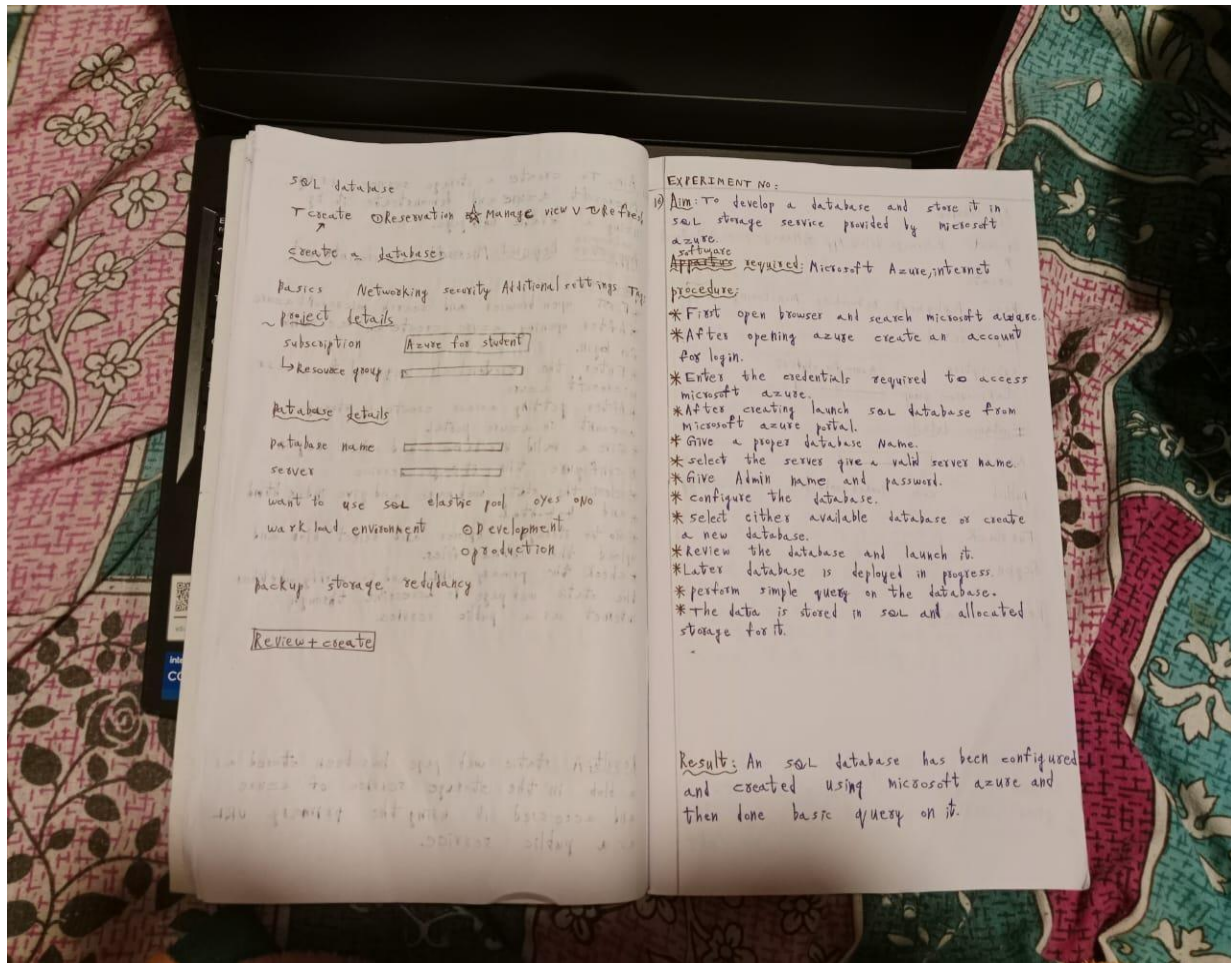 SQL database
Create Reservation Manage view Refresh
create a database
Basics Networking security Additional settings
project details
subscription Azure for student
Resource group
Database details
Database name
server
want to use SQL elastic pool Yes No
work load environment Development
production
backup storage redudancy
Review + create
EXPERIMENT NO:
19) Aim: To develop a database and store it in
SQL storage service provided by microsoft
azure.
software
required: Microsoft Azure, internet
procedure:
* First open browser and search microsoft azure.
* After opening azure create an account
for login.
* Enter the credentials required to access
microsoft azure.
* After creating launch SQL database from
microsoft azure portal.
* Give a proper database Name.
* select the server give a valid server name.
* Give Admin name and password.
* configure the database.
* select either available database or create
a new database.
* Review the database and launch it.
* Later database is deployed in progress.
* perform simple query on the database.
* The data is stored in SQL and allocated
storage for it.
Result: An SQL database has been configured
and created using microsoft azure and
then done basic query on it.